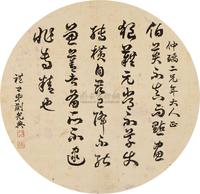 仲璐二兄年大人正
伯英不真而點畫
狼藉元常不草使轉
縱橫自茲已降不能
兼善者有所不逮
非專精也
禮卿蒯光典